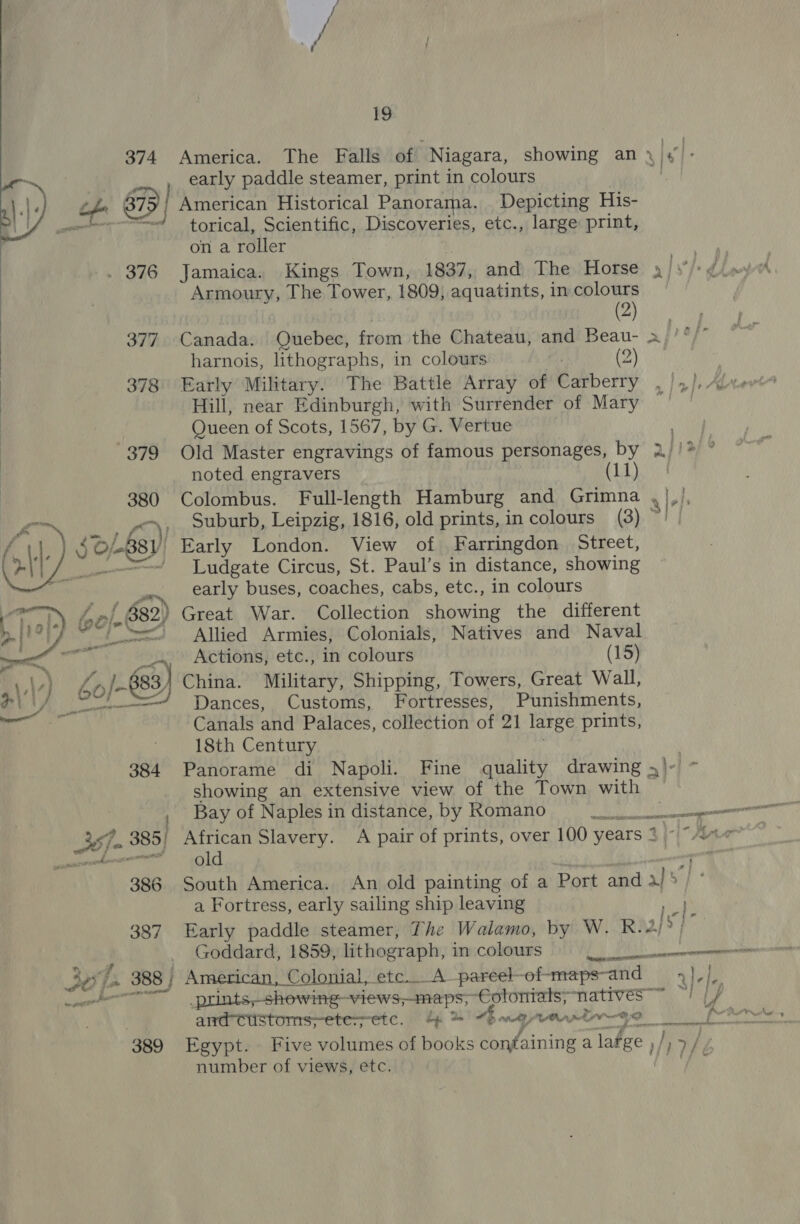 19
374 America. The Falls of Niagara, showing an
early paddle steamer, print in colours
375 American Historical Panorama. Depicting His-
torical, Scientific, Discoveries, etc., large print,
on a roller
376 Jamaica. Kings Town, 1837, and The Horse
Armoury, The Tower, 1809, aquatints, in colours
(2)
377 Canada. Quebec, from the Chateau, and Beau-
harnois, lithographs, in colours (2)
378 Early Military. The Battle Array of Carberry
Hill, near Edinburgh, with Surrender of Mary
Queen of Scots, 1567, by G. Vertue
379 Old Master engravings of famous personages, by
noted engravers (11)
380 Colombus. Full-length Hamburg and Grimna
Suburb, Leipzig, 1816, old prints, in colours (3)
50/- 381 Early London. View of Farringdon Street,
Ludgate Circus, St. Paul's in distance, showing
early buses, coaches, cabs, etc., in colours
60/- 382 Great War. Collection showing the different
Allied Armies, Colonials, Natives and Naval
Actions, etc., in colours (15)
60/- 383 China. Military, Shipping, Towers, Great Wall,
Dances, Customs, Fortresses, Punishments,
Canals and Palaces, collection of 21 large prints,
18th Century
384 Panorame di Napoli. Fine quality drawing
showing an extensive view of the Town with
Bay of Naples in distance, by Romano
385 African Slavery. A pair of prints, over 100 years
old
386 South America. An old painting of a Port and
a Fortress, early sailing ship leaving
387 Early paddle steamer, The Walamo, by W. R.
Goddard, 1859, lithograph, in colours
388 American, Colonial, etc. A parcel of maps and
prints, showing views, maps, Colonials, natives
and customs, etc., etc.
389 Egypt. Five volumes of books containing a large
number of views, etc.